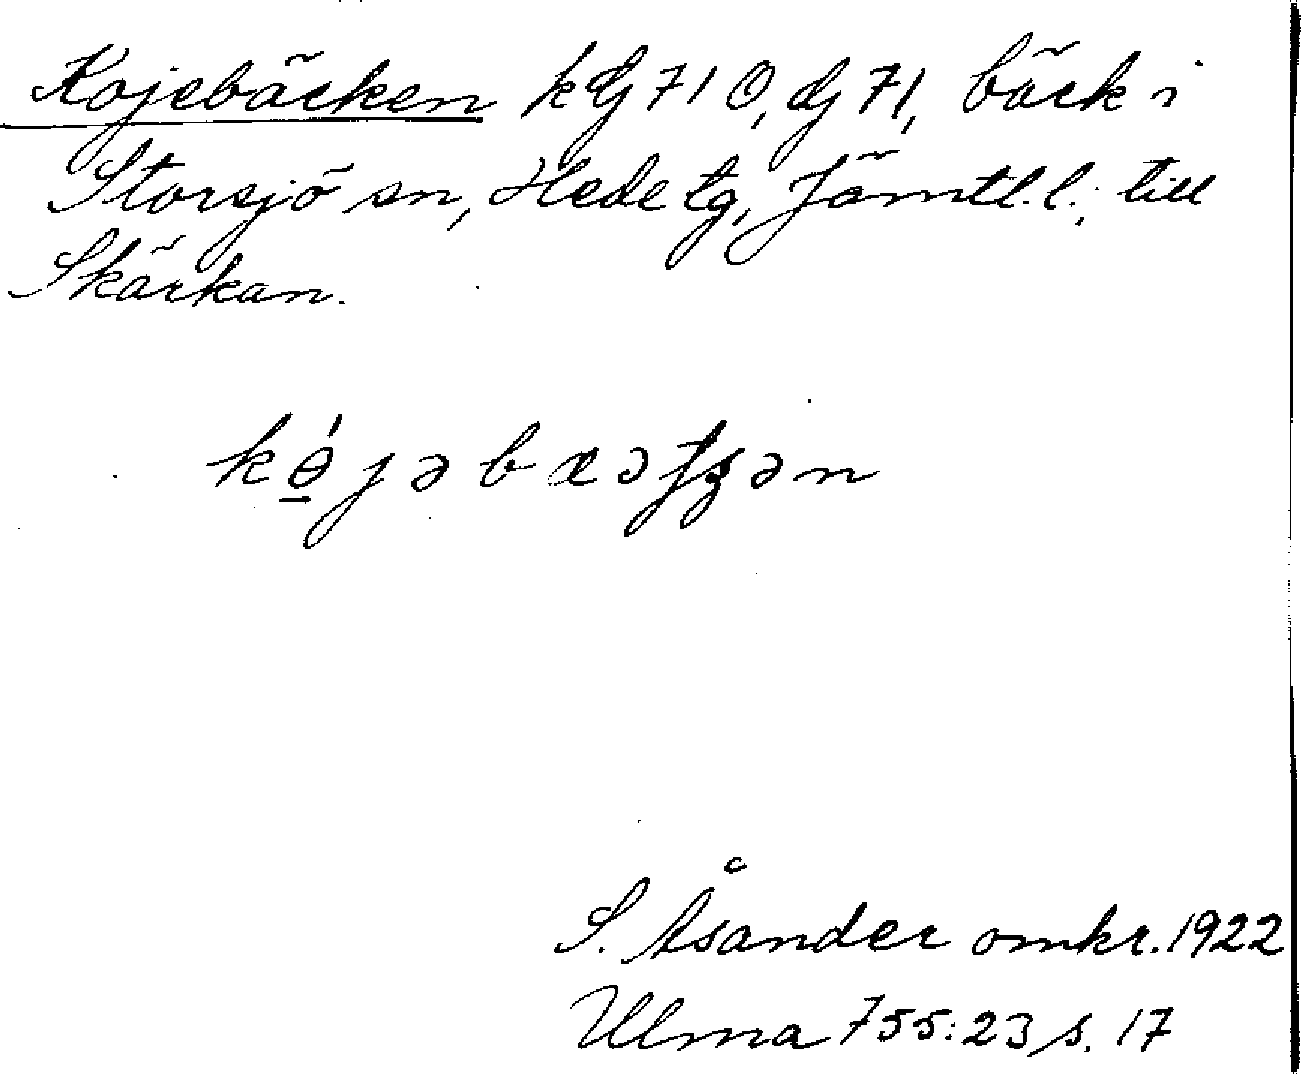 Kojebäcken k dj 71 O, dj 71, bäck i
Storsjö sn, Hede tg, Jämtl. l.; till
Skärkan.
kɵ̲́jəbæəʃʒən
S. Åsander omkr. 1922
Ulma 755:23 s. 17